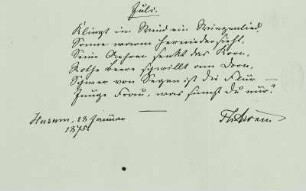 Juli.
Klingt im Wind ein Wiegenlied,
Sonne warm herniedersieht,
Seine Aehren senkt das Korn,
Rothe Beere schwillt am Dorn,
Schwer von Segen ist die Flur –
Junge Frau, was sinnst du nur?
Husum, 23 Januar
1875.
ThStorm